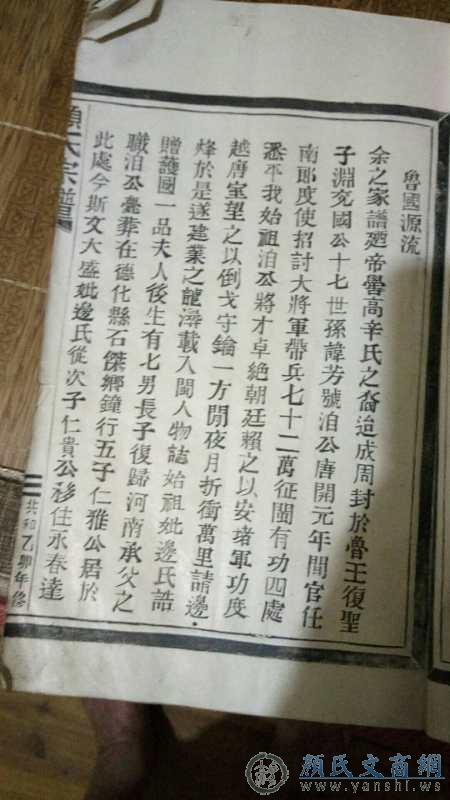 魯國源流
余之家譜廼帝嚳高辛氏之裔迨成周封於魯王復聖
子淵兗國公十七世孫諱芳號泊公唐開元年間官任
南耶度使招討大將軍帶兵七十二萬征閩有功四處
悉平我始祖泊公將才卓絕朝廷賴之以安堵軍功度
越唐室望之以倒戈守鑰一方閒夜月折衝萬里請邊
烽於是遂建業之龍潯載入閩人物誌始祖妣邊氏誥
贈護國一品夫人後生有七男長子復歸河南承父之
職泊公薨葬在德化縣石傑鄉鐘行五子仁雅公居於
此處今斯文大盛妣邊氏從次子仁貴公移住永春達
顏氏宗譜
共和乙卯年修
顏氏文商網
www.yanshi.ws